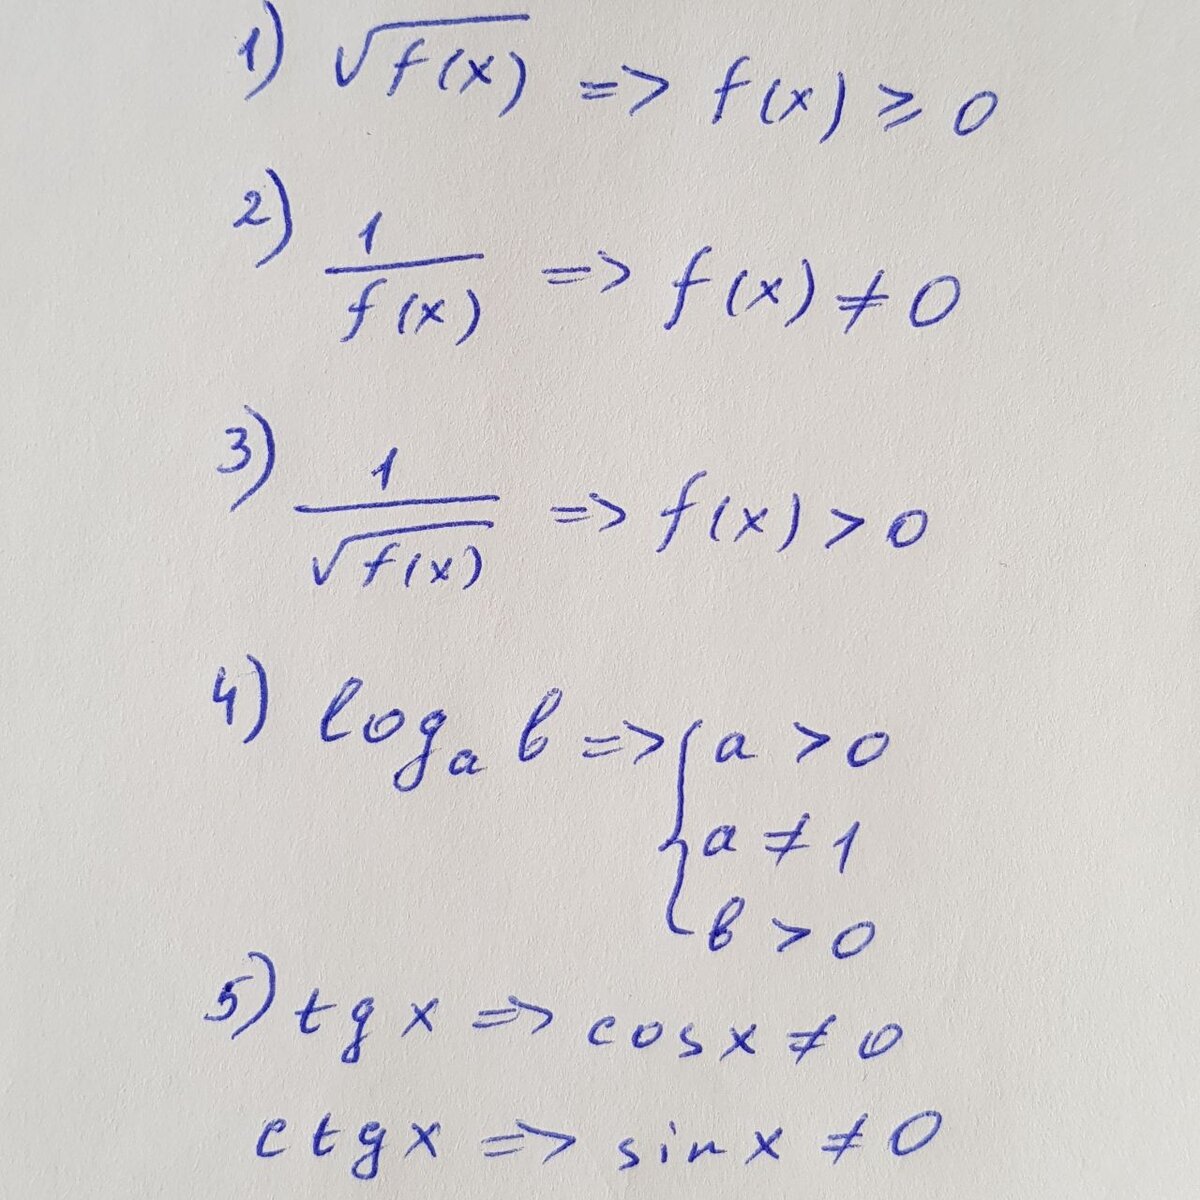 1) √f(x) => f(x) ⩾ 0
2) 1/f(x) => f(x) ≠ 0
3) 1/√f(x) => f(x) > 0
4) logₐ b => { a > 0
a ≠ 1
b > 0
5) tg x => cos x ≠ 0
ctg x => sin x ≠ 0